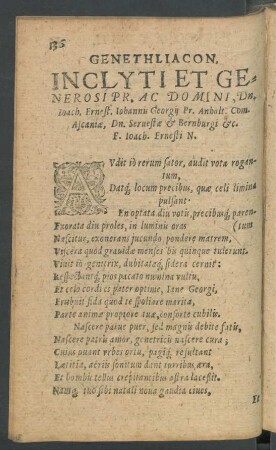 136
GENETHLIACON.
INCLYTI ET GE-
NEROSI PR. AC DOMINI, Dn.
Ioach. Ernest. Iohannis Georgij Pr. Anhalt. Com.
Ascaniæ, Dn. Seruestæ & Bernburgi &c.
F. Ioach. Ernesti N.
AVdit iô rerum sator, audit vota rogan-
tum,
Datq́; locum precibus, quæ celi limina
pulsant.
En optata diu votis, precibusq́; paren-
Exorata diu proles, in luminis oras (tum
Nascitur, exonerans jucundo pondere matrem,
Viscera quod grauidæ menses bis quinque tulerunt.
Viuit iô genetrix, dubitatq́; sidera cernit:
Respectantq́; pios pacato numina vultu,
Et celo cordi et pater optime, Iane Georgi,
Erubuit fida quod te spoliare marita,
Parte animæ propiore tuæ, consorte cubilis.
Nascere parue puer, sed magnis debite fatis,
Nascere patris amor, genetricis nascere cura;
Cuius ouant vrbes ortu, pagiq́; resultant
Lætitia, aëriis sonitum dant turribus æra,
Et bombis tellus crepitantibus astra lacessit.
Namq́; tuo sibi natali noua gaudia ciues,
Et